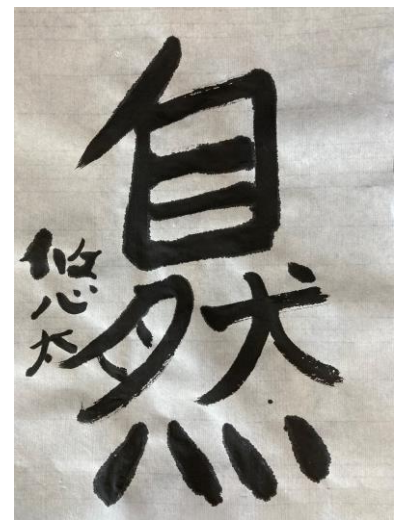 自然
悠太